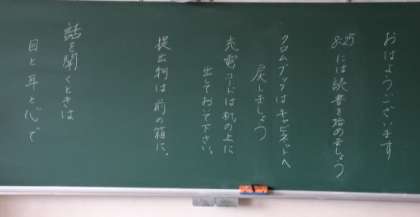 おはようございます
8:25には読書を始めましょう
クロムブックはキャビネットへ
戻しましょう
充電コードは机の上に
出しておいて下さい。
提出物は前の箱に、
話を聞くときは
目と耳と心で